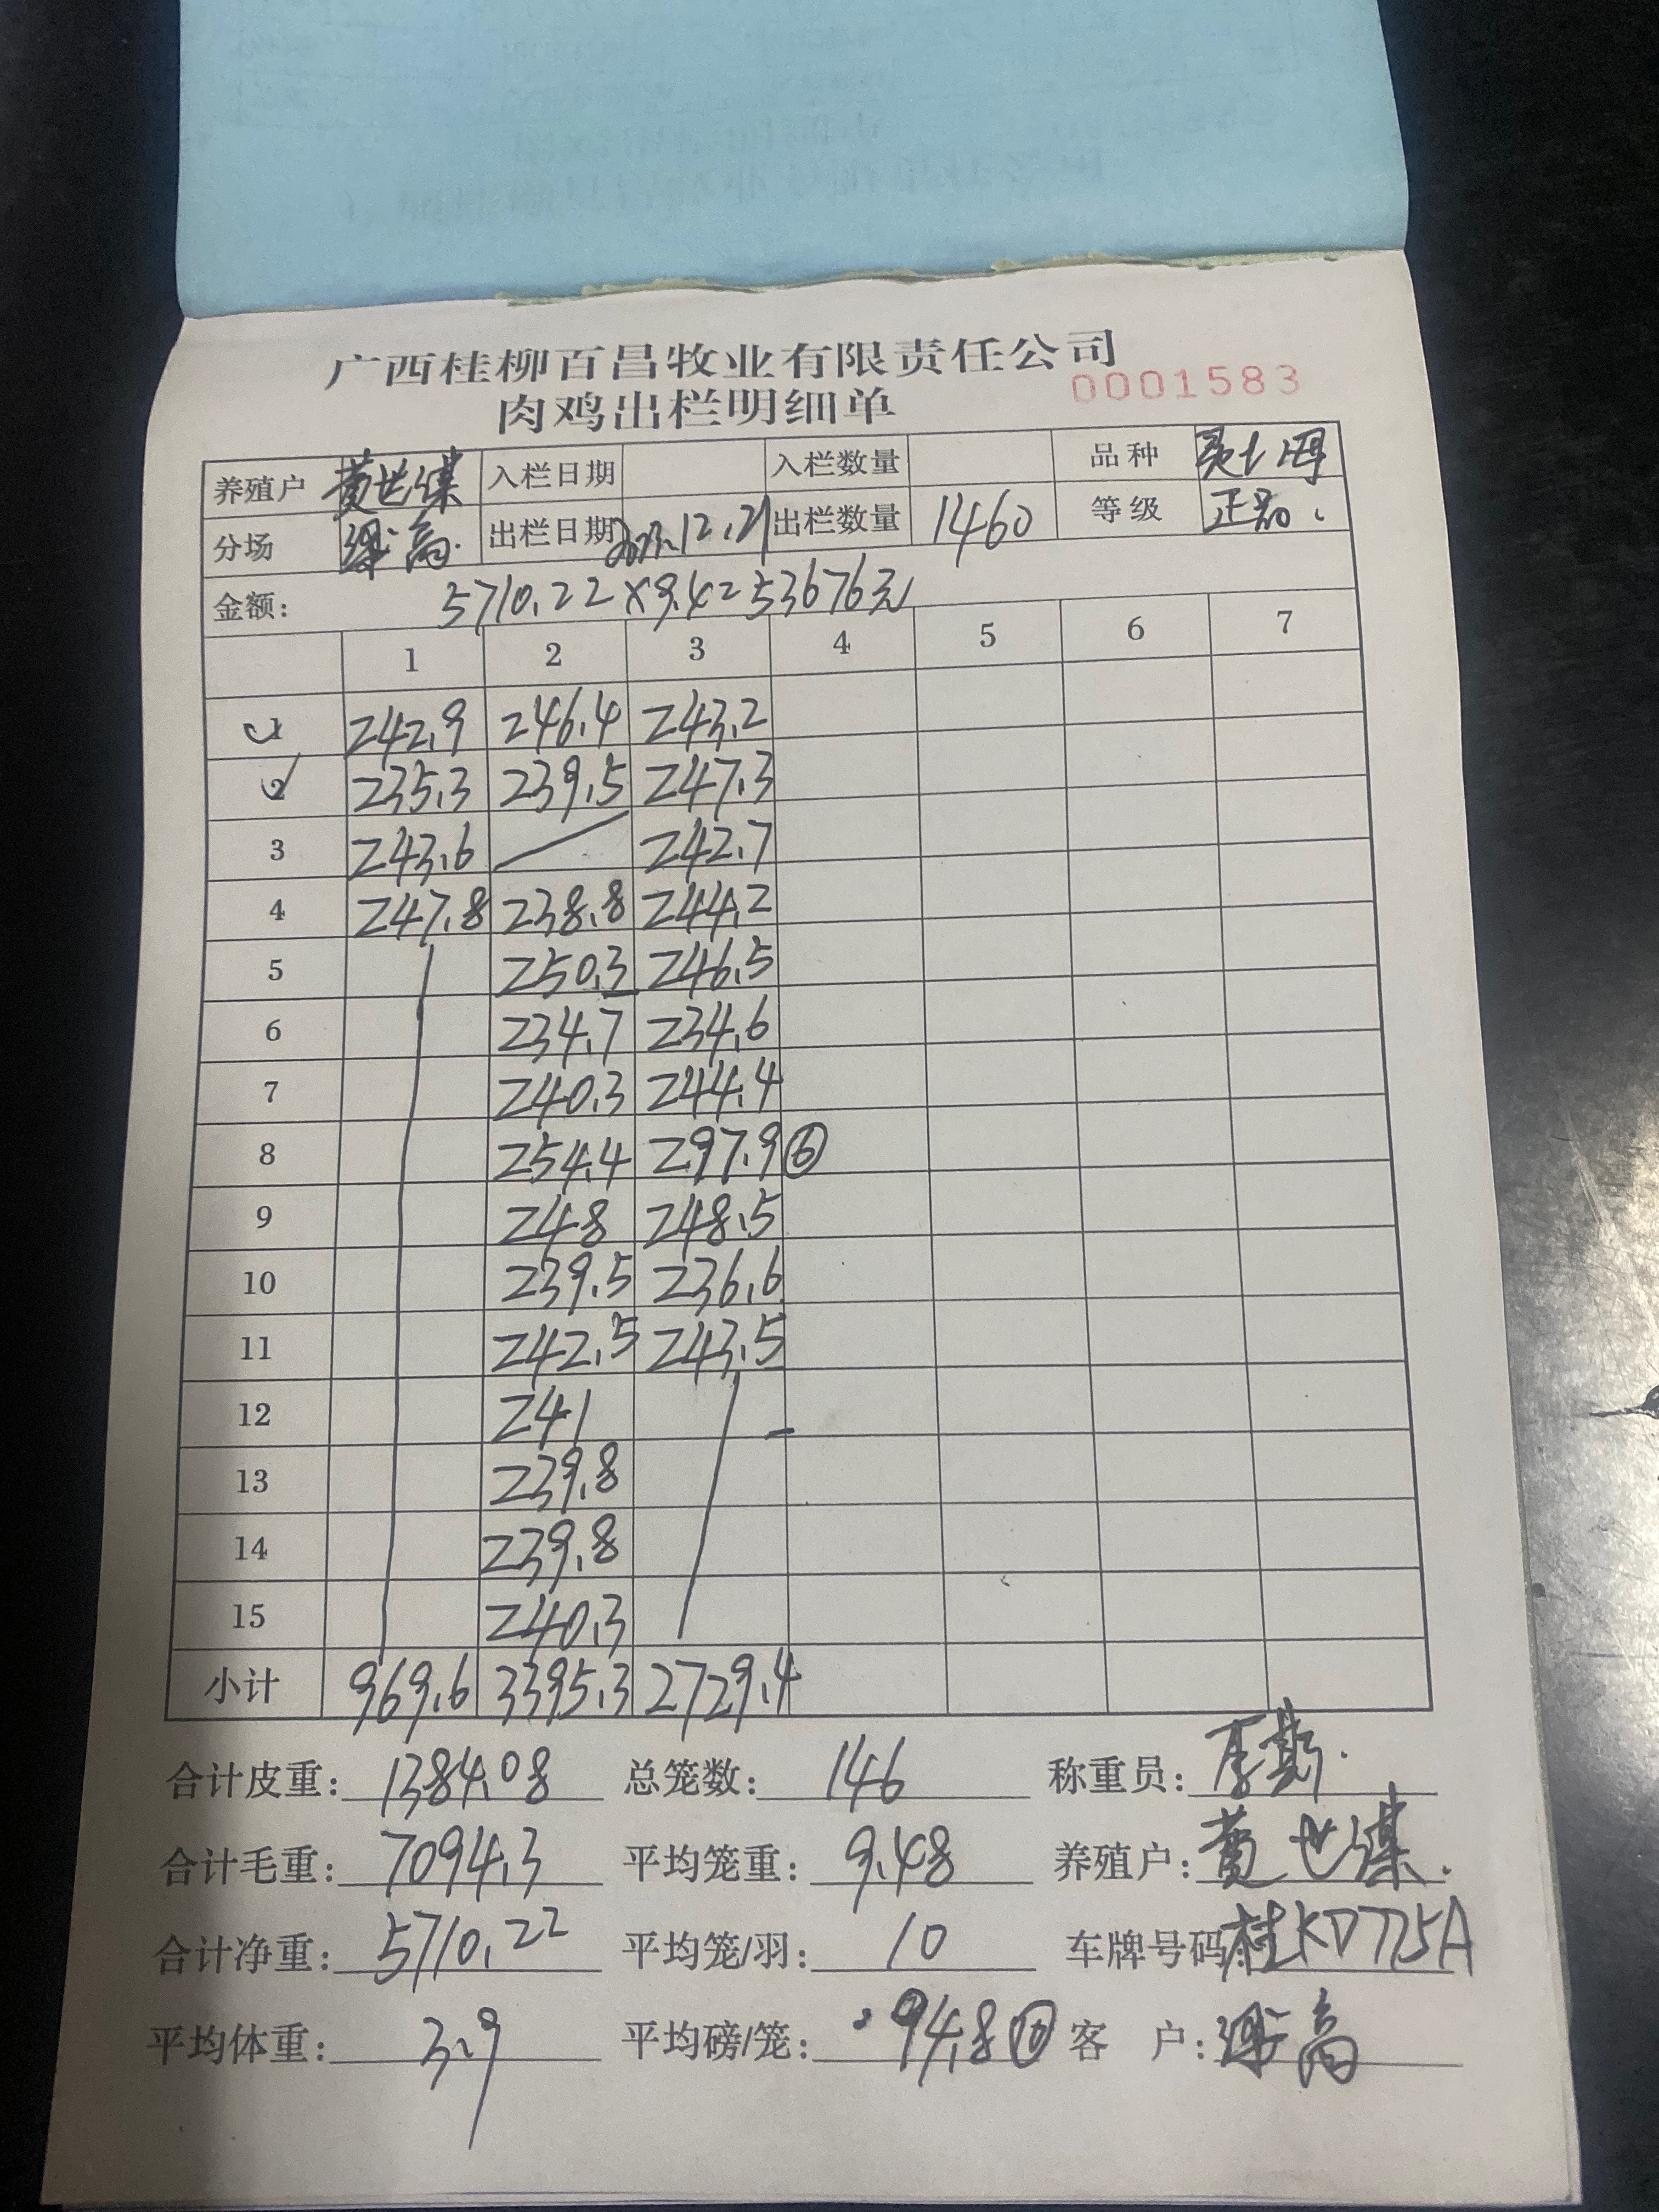 广西桂柳百昌牧业有限责任公司
肉鸡出栏明细单 0001583
养殖户 黄世谋 入栏日期 入栏数量 品种
分场 高 出栏日期 12.21 出栏数量 1460 等级 正品.
金额: 5710.22×9.4=53676元
1 2 3 4 5 6 7
1 242.9 246.4 243.2
2 235.3 239.5 247.3
3 243.6 242.7
4 247.8 238.8 244.2
5 250.3 246.5
6 234.7 234.6
7 240.3 244.4
8 254.4 297.9 ⑥
9 248 248.5
10 239.5 236.6
11 242.5 243.5
12 241
13 239.8
14 239.8
15 240.3
小计 969.6 3395.3 2729.4
合计皮重: 1384.08 总笼数: 146 称重员:
合计毛重: 7094.3 平均笼重: 9.48 养殖户: 黄世谋.
合计净重: 5710.22 平均笼/羽: 10 车牌号码: 桂KD775A
平均体重: 3.9 平均磅/笼: 94.8⑩ 客 户: 高